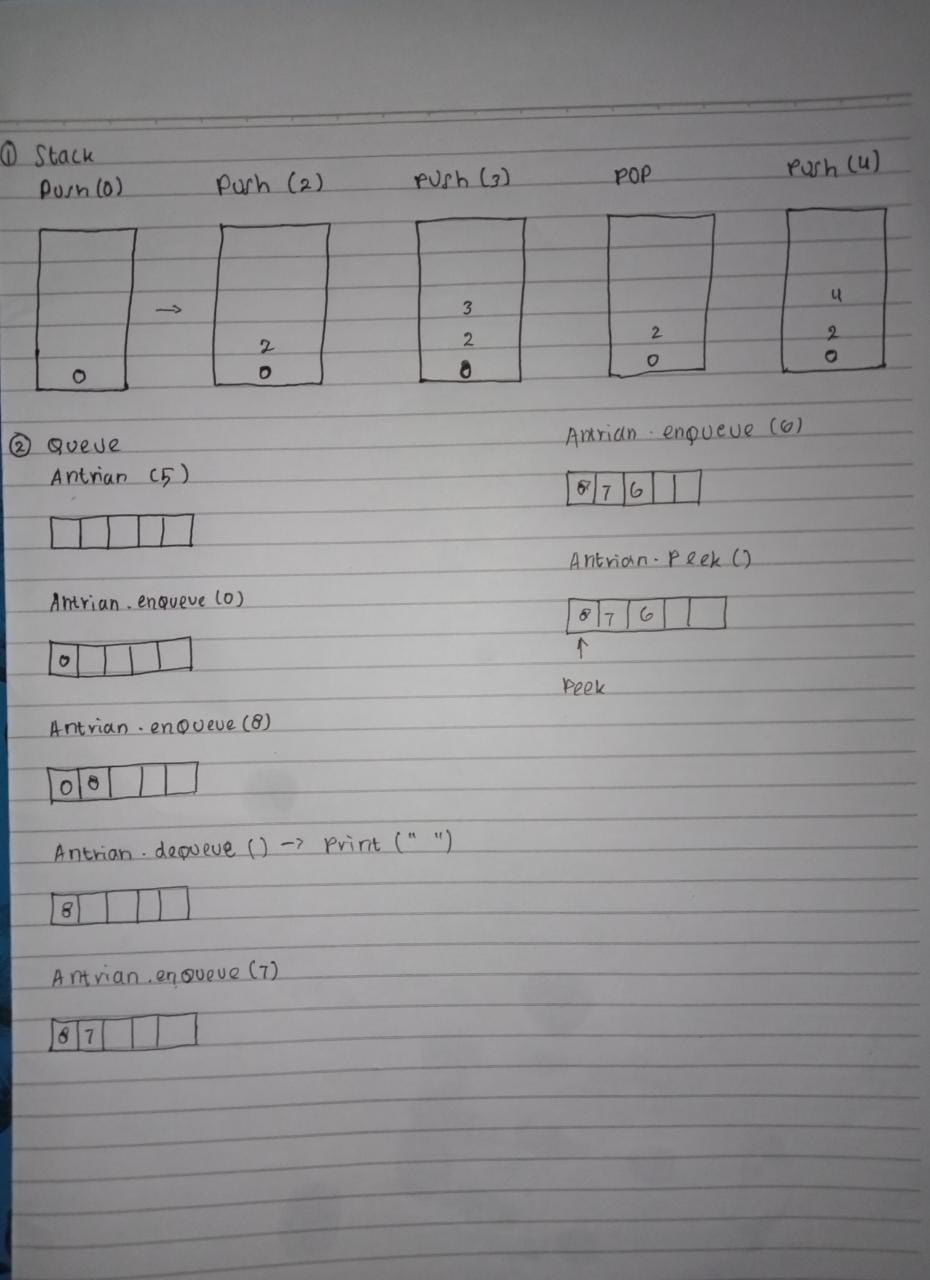 ① Stack
Push (0) Push (2) Push (3) POP Push (4)
→
0
2
0
3
2
0
2
0
4
2
0
② Queue
Antrian (5)
Antrian . enqueue (0)
0
Antrian . enqueue (8)
0 8
Antrian . dequeue () → Print (" ")
8
Antrian . enqueue (7)
8 7
Antrian . enqueue (6)
8 7 6
Antrian . Peek ()
8 7 6
↑
Peek